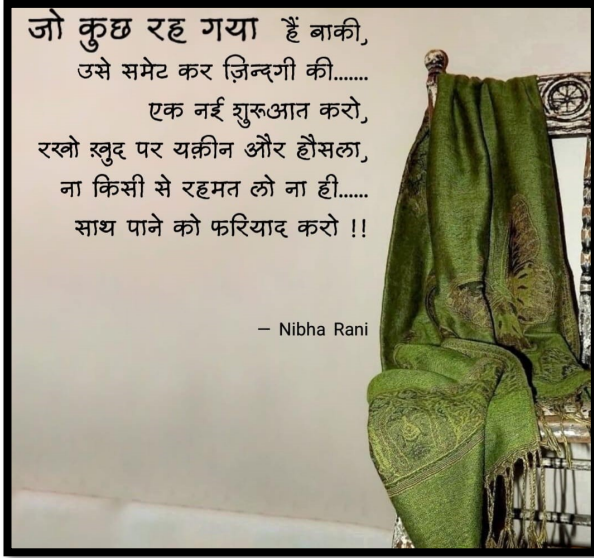 जो कुछ रह गया हैं बाकी,
उसे समेट कर ज़िन्दगी की.......
एक नई शुरूआत करो,
रखो ख़ुद पर यक़ीन और हौसला,
ना किसी से रहमत लो ना ही......
साथ पाने को फरियाद करो !!
– Nibha Rani